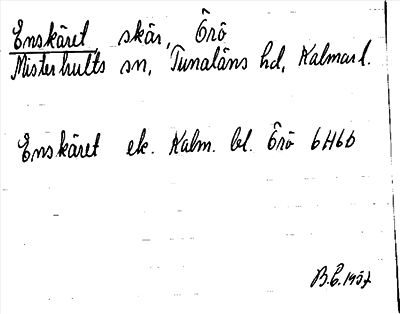 Enskäret, skär, Örö
Misterhults sn, Tunaläns hd, Kalmar l.
Enskäret ek. Kalm. bl. Örö 6H6b
B.E. 1957